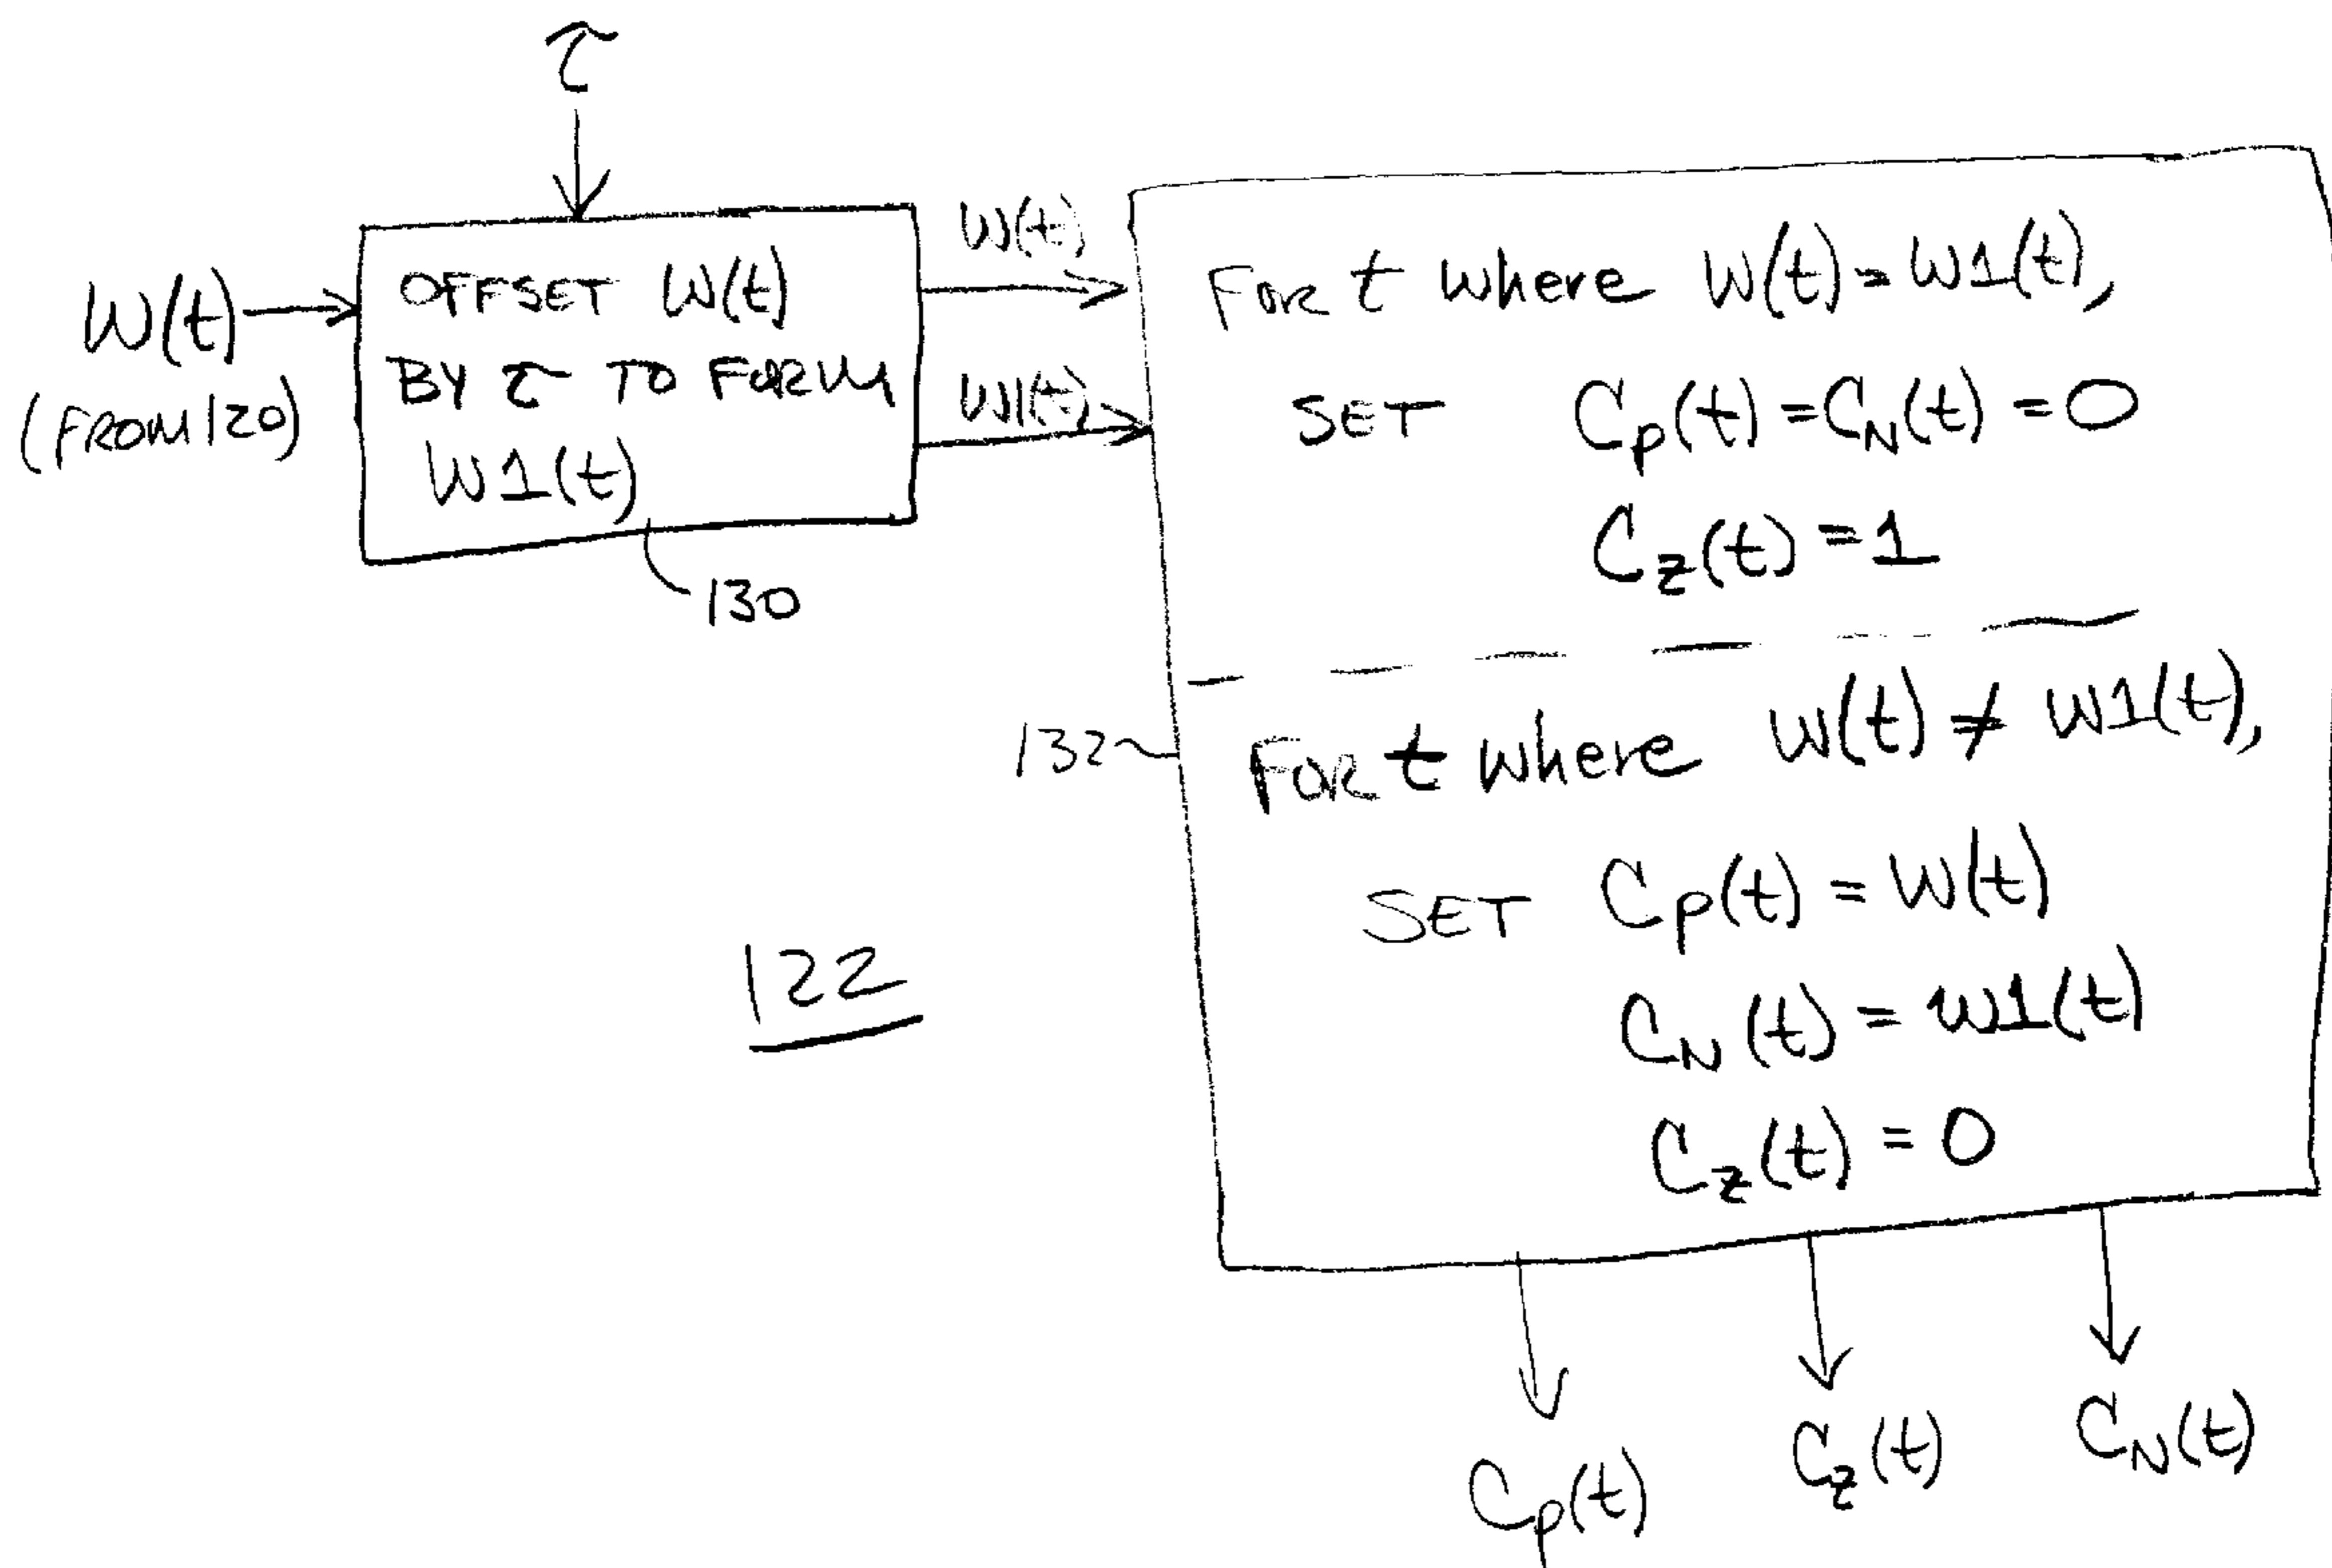 τ
W(t)
(FROM 120)
OFFSET W(t)
BY τ TO FORM
W1(t)
130
W(t)
W1(t)
FOR t where W(t) = W1(t),
SET Cp(t) = CN(t) = 0
Cz(t) = 1
132
FOR t where W(t) ≠ W1(t),
SET Cp(t) = W(t)
CN(t) = W1(t)
Cz(t) = 0
122
Cp(t)
Cz(t)
CN(t)